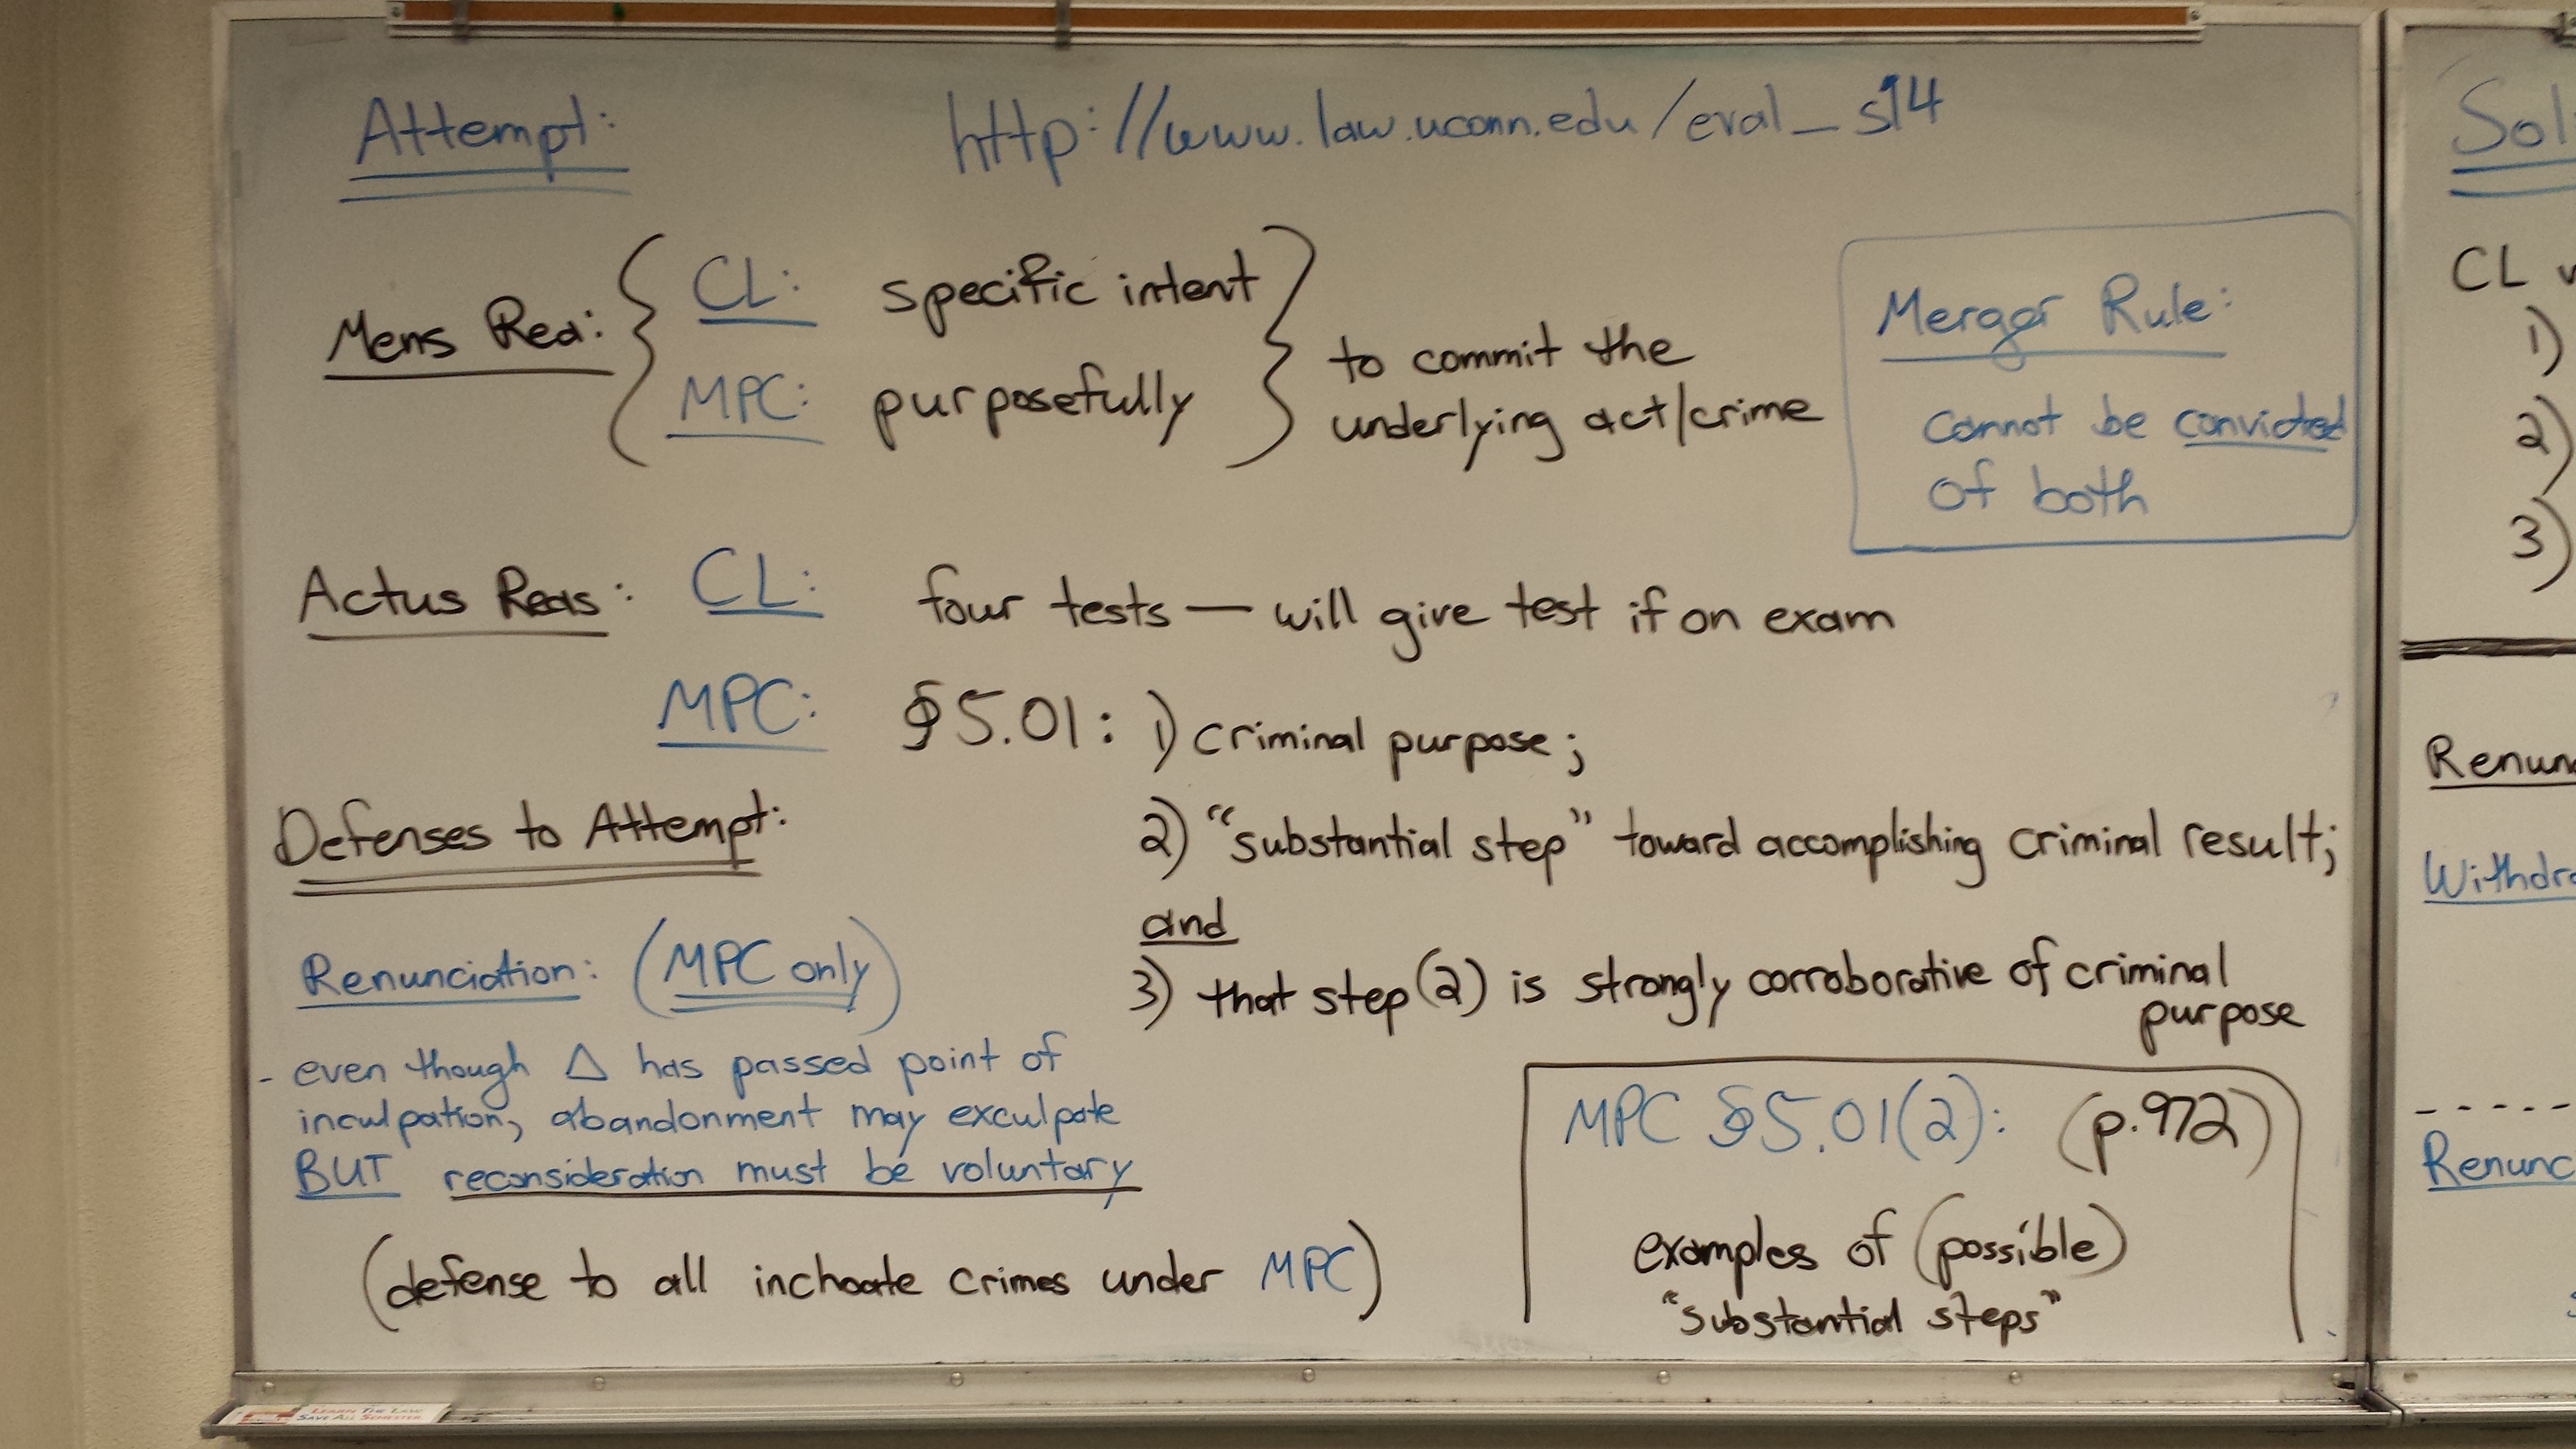 Attempt:
http://www.law.uconn.edu/eval_s14
Mens Rea:
CL: specific intent
MPC: purposefully
to commit the
underlying act/crime
Merger Rule:
cannot be convicted
of both
Actus Reas: CL: four tests — will give test if on exam
MPC: §5.01: 1) criminal purpose;
2) "substantial step" toward accomplishing criminal result;
and
3) that step (2) is strongly corroborative of criminal
purpose
Defenses to Attempt:
Renunciation: (MPC only)
- even though Δ has passed point of
inculpation, abandonment may exculpate
BUT reconsideration must be voluntary
(defense to all inchoate crimes under MPC)
MPC §5.01(2): (p.972)
examples of (possible)
"substantial steps"
LEARN THE LAW
SAVE ALL SEMESTER.
Sol
CL
1)
2)
3)
Renun
Withdr
Renunc